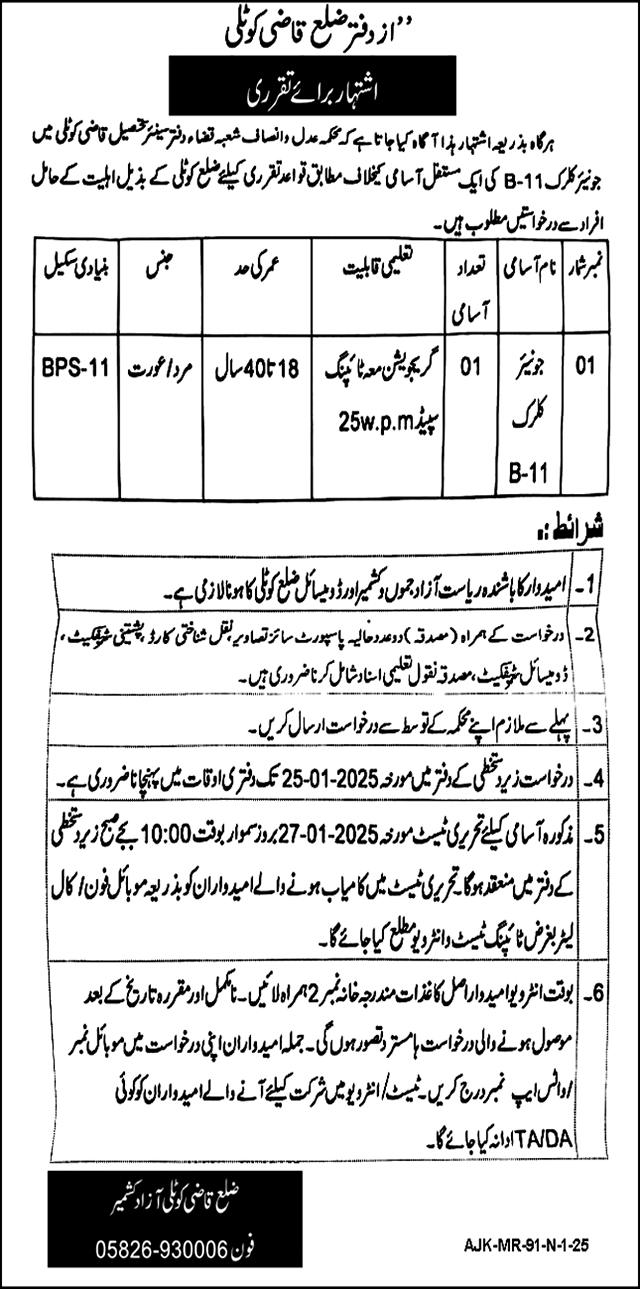 ”از دفتر ضلع قاضی کوٹلی
اشتہار برائے تقرری
ہرگاہ بذریعہ اشتہار ہذا آگاہ کیا جاتا ہے کہ محکمہ عدل و انصاف شعبہ قضاء دفتر سینئر تحصیل قاضی کوٹلی میں
جونیئر کلرک B-11 کی ایک مستقل آسامی کیخلاف مطابق قواعد تقرری کیلئے ضلع کوٹلی کے بذیل اہلیت کے حامل
افراد سے درخواستیں مطلوب ہیں۔
نمبر شمار نام آسامی تعداد آسامی تعلیمی قابلیت عمر کی حد جنس بنیادی سکیل
01 جونیئر کلرک B-11 01 گریجویشن معہ ٹائپنگ سپیڈ 25w.p.m 18 تا 40 سال مرد/عورت BPS-11
شرائط :۔
1۔ امیدوار کا باشندہ ریاست آزاد جموں و کشمیر اور ڈومیسائل ضلع کوٹلی کا ہونا لازمی ہے۔
2۔ درخواست کے ہمراہ (مصدقہ) دو عدد حالیہ پاسپورٹ سائز تصاویر، نقل شناختی کارڈ، پشتینی سرٹیفکیٹ،
ڈومیسائل سرٹیفکیٹ، مصدقہ نقول تعلیمی اسناد شامل کرنا ضروری ہیں۔
3۔ پہلے سے ملازم اپنے محکمہ کے توسط سے درخواست ارسال کریں۔
4۔ درخواست زیر دستخطی کے دفتر میں مورخہ 25-01-2025 تک دفتری اوقات میں پہنچانا ضروری ہے۔
5۔ مذکورہ آسامی کیلئے تحریری ٹیسٹ مورخہ 27-01-2025 بروز سموار بوقت 10:00 بجے صبح زیر دستخطی
کے دفتر میں منعقد ہوگا۔ تحریری ٹیسٹ میں کامیاب ہونے والے امیدواران کو بذریعہ موبائل فون/کال
لیٹر بغرض ٹائپنگ ٹیسٹ و انٹرویو مطلع کیا جائے گا۔
6۔ بوقت انٹرویو امیدوار اصل کاغذات مندرجہ خانہ نمبر 2 ہمراہ لائیں۔ نامکمل اور مقررہ تاریخ کے بعد
موصول ہونے والی درخواست ہا مسترد تصور ہوں گی۔ جملہ امیدواران اپنی درخواست میں موبائل نمبر
/واٹس ایپ نمبر درج کریں۔ ٹیسٹ/انٹرویو میں شرکت کیلئے آنے والے امیدواران کو کوئی
TA/DA ادا نہ کیا جائے گا۔
ضلع قاضی کوٹلی آزاد کشمیر
فون 05826-930006
AJK-MR-91-N-1-25